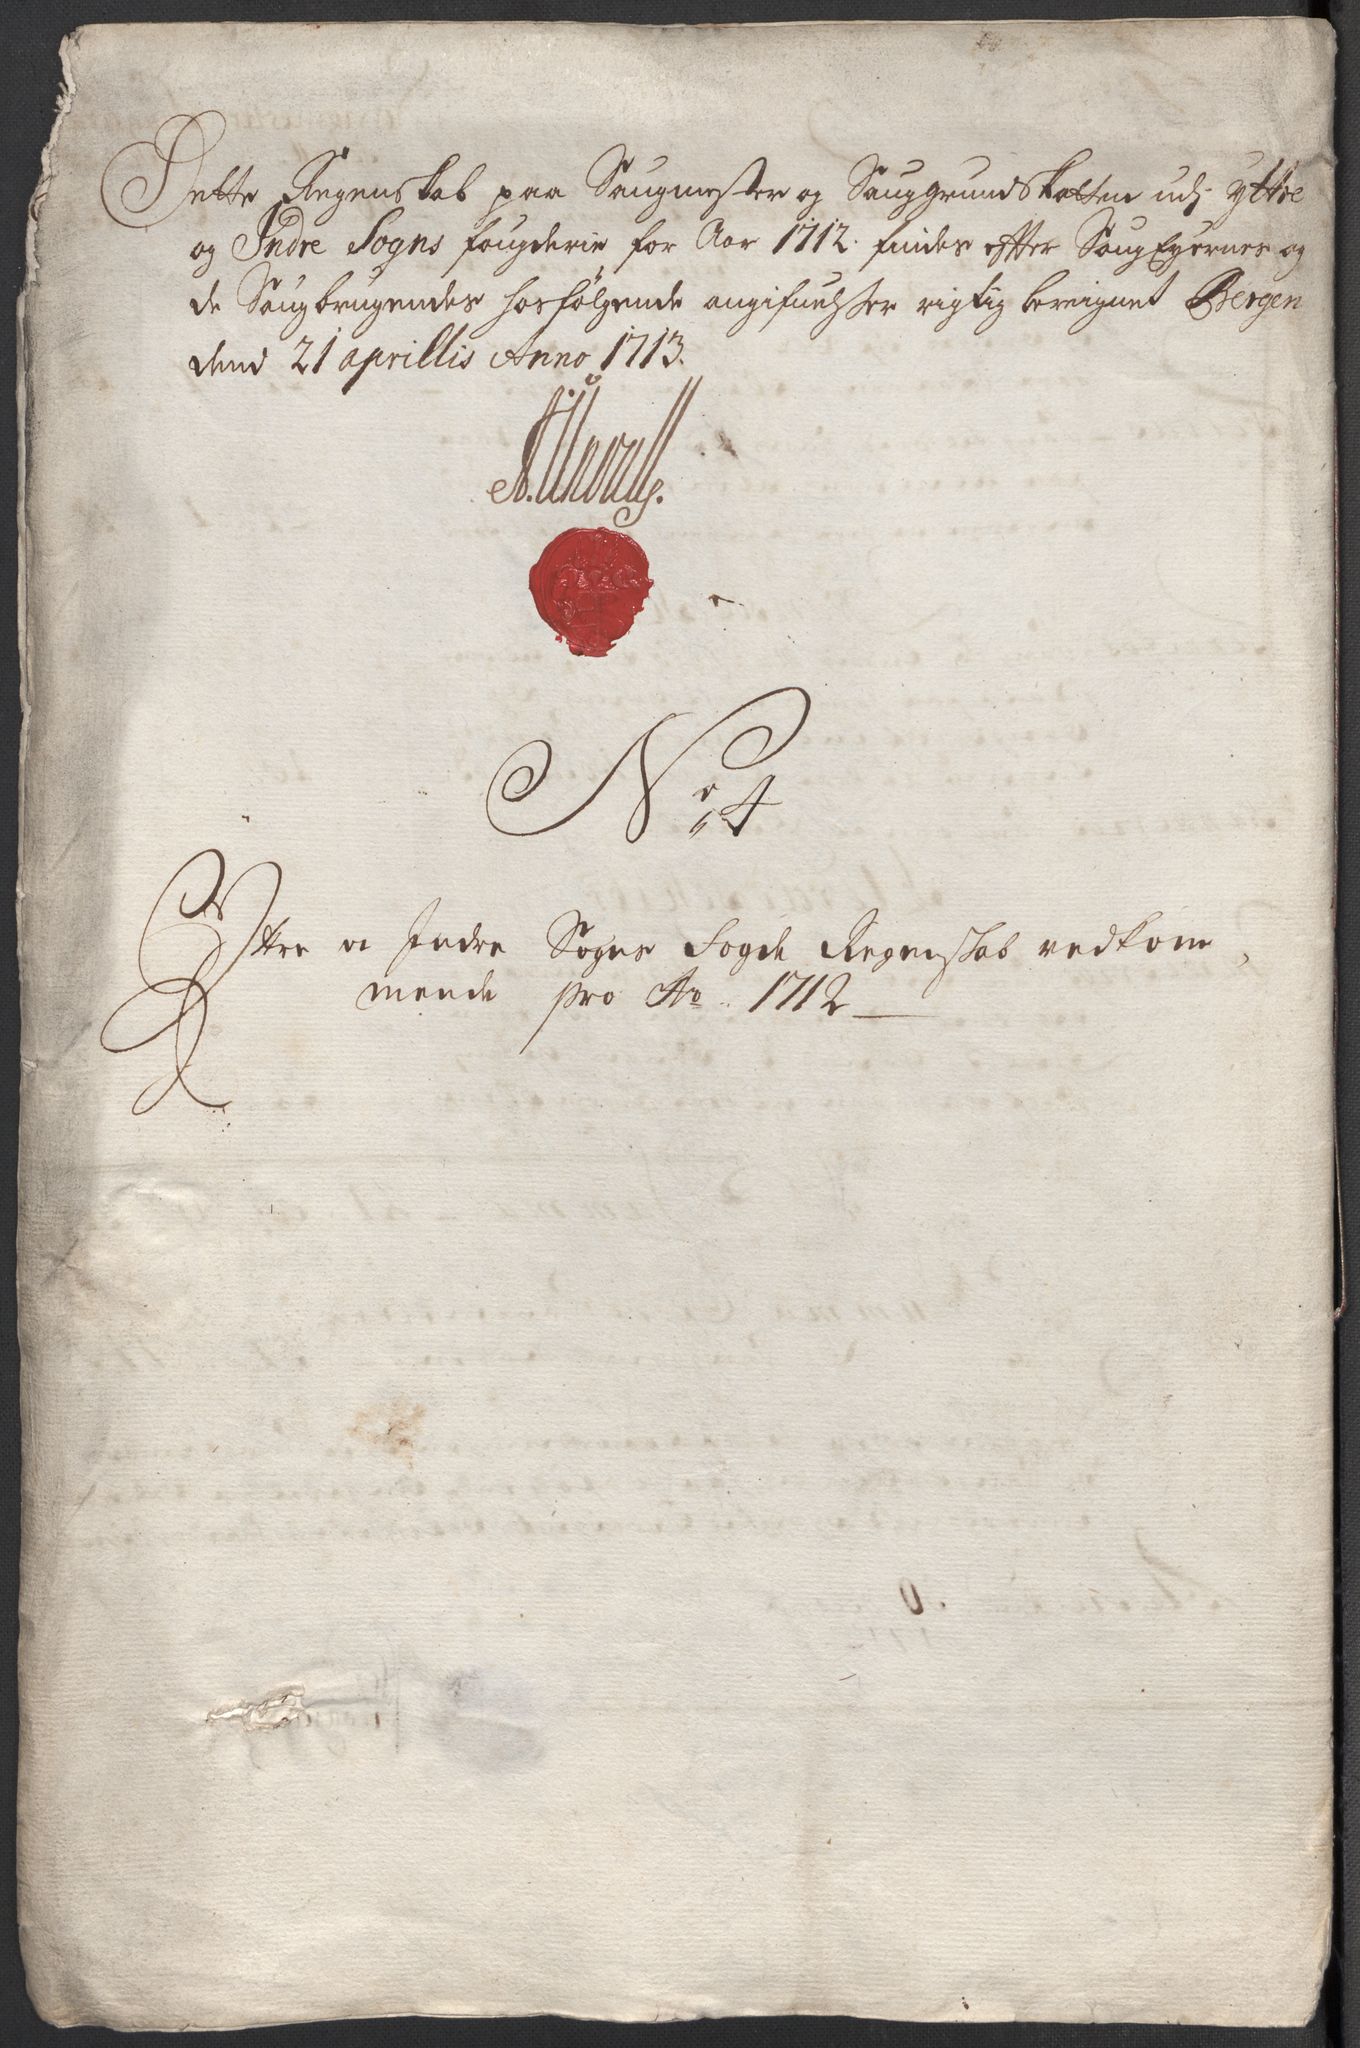 Dette Regenskab paa Saugmester og Sauggrundskatten udj yttre
og Indre Sogns fougderie for Aar 1712. findes efter SaugEyernes og
de Saugbrugendes hosfölgende angifuelser rigtig bereignet Bergen
dend 21 aprillis Anno 1713.
No 4
Yttre og Indre Sogns Fogde Regenskab vedkom-
mende pro Ao. 1712